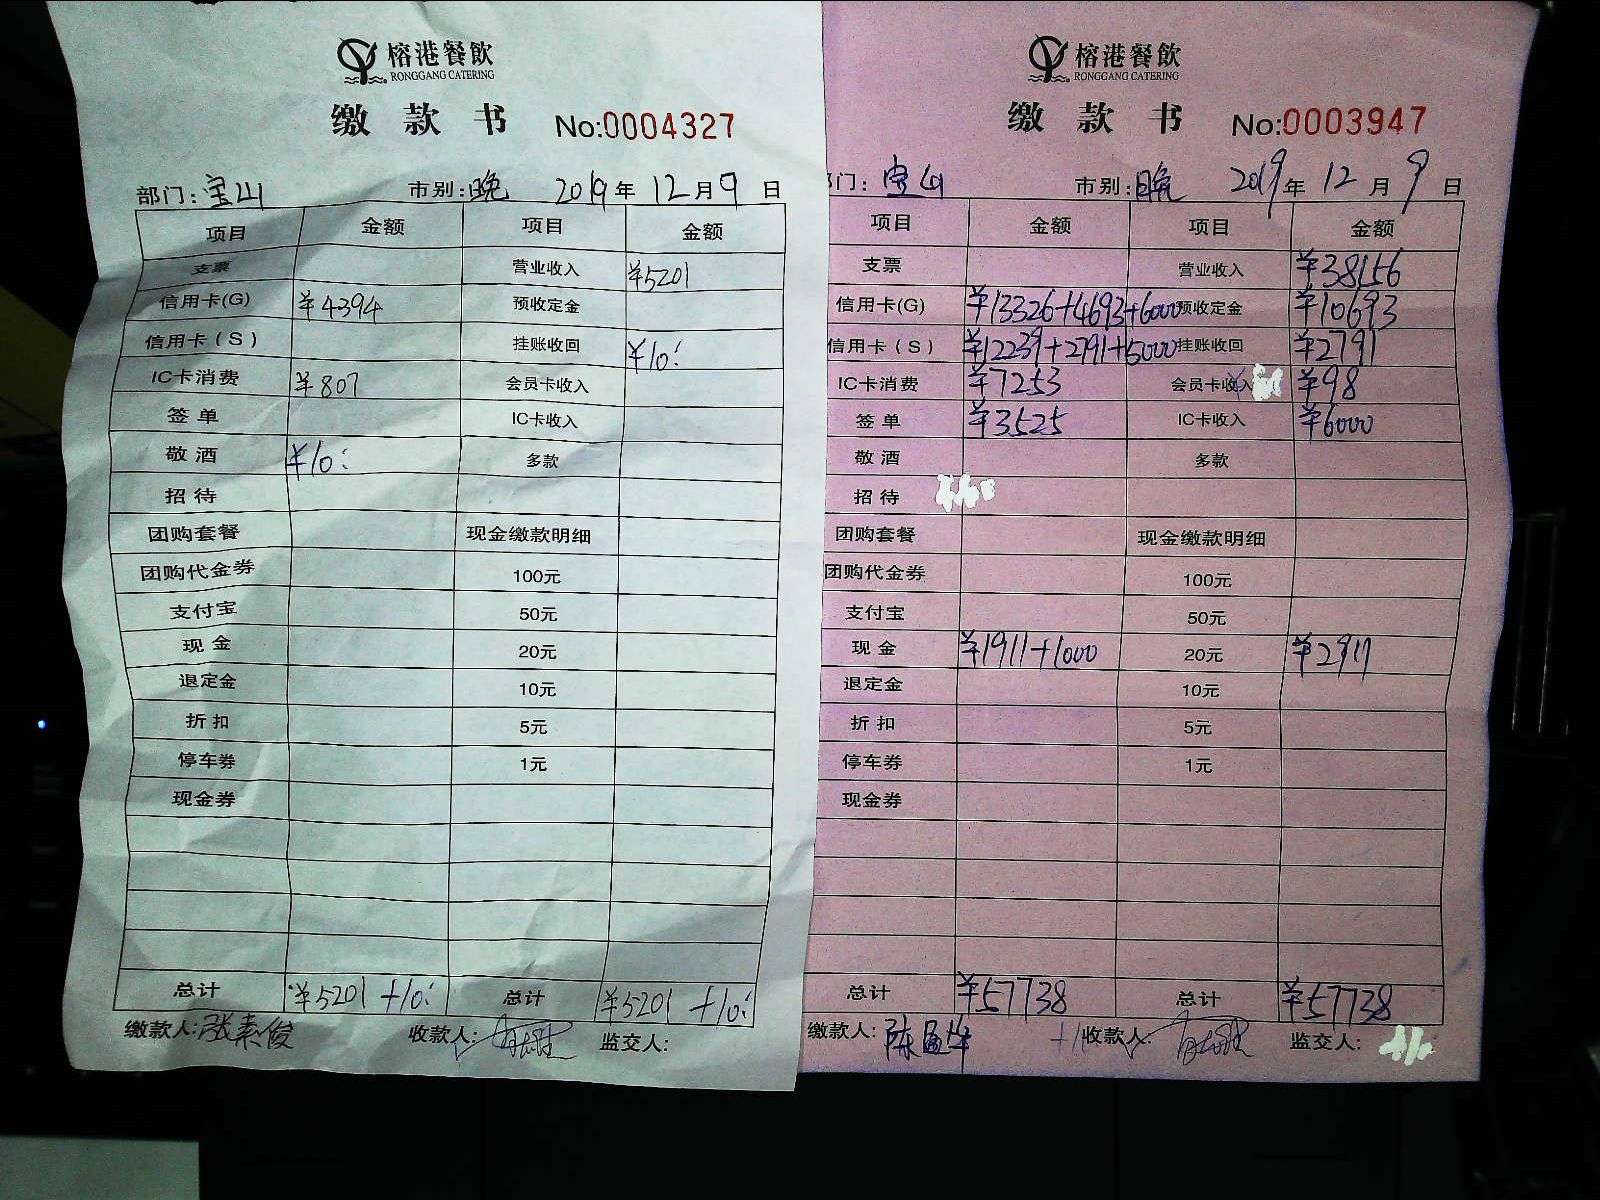 榕港餐飲
RONGGANG CATERING
缴款书 No:0004327
部门:宝山 市别:晚 2019年12月9日
项目 金额 项目 金额
支票 营业收入 ¥5201
信用卡(G) ¥4394 预收定金
信用卡(S) 挂账收回 ¥10:
IC卡消费 ¥807 会员卡收入
签单 IC卡收入
敬酒 ¥10: 多款
招待
团购套餐 现金缴款明细
团购代金券 100元
支付宝 50元
现金 20元
退定金 10元
折扣 5元
停车券 1元
现金券
总计 ¥5201 +10: 总计 ¥5201 +10:
缴款人:张素俊 收款人: 监交人:
榕港餐飲
RONGGANG CATERING
缴款书 No:0003947
部门:宝山 市别:晚 2019年12月9日
项目 金额 项目 金额
支票 营业收入 ¥38156
信用卡(G) ¥13326+4693+6000 预收定金 ¥10693
信用卡(S) ¥12239+2791+5000 挂账收回 ¥2791
IC卡消费 ¥7253 会员卡收入 ¥98
签单 ¥3525 IC卡收入 ¥6000
敬酒 多款
招待
团购套餐 现金缴款明细
团购代金券 100元
支付宝 50元
现金 ¥1911+1000 20元 ¥2911
退定金 10元
折扣 5元
停车券 1元
现金券
总计 ¥57738 总计 ¥57738
缴款人:陈 收款人: 监交人: